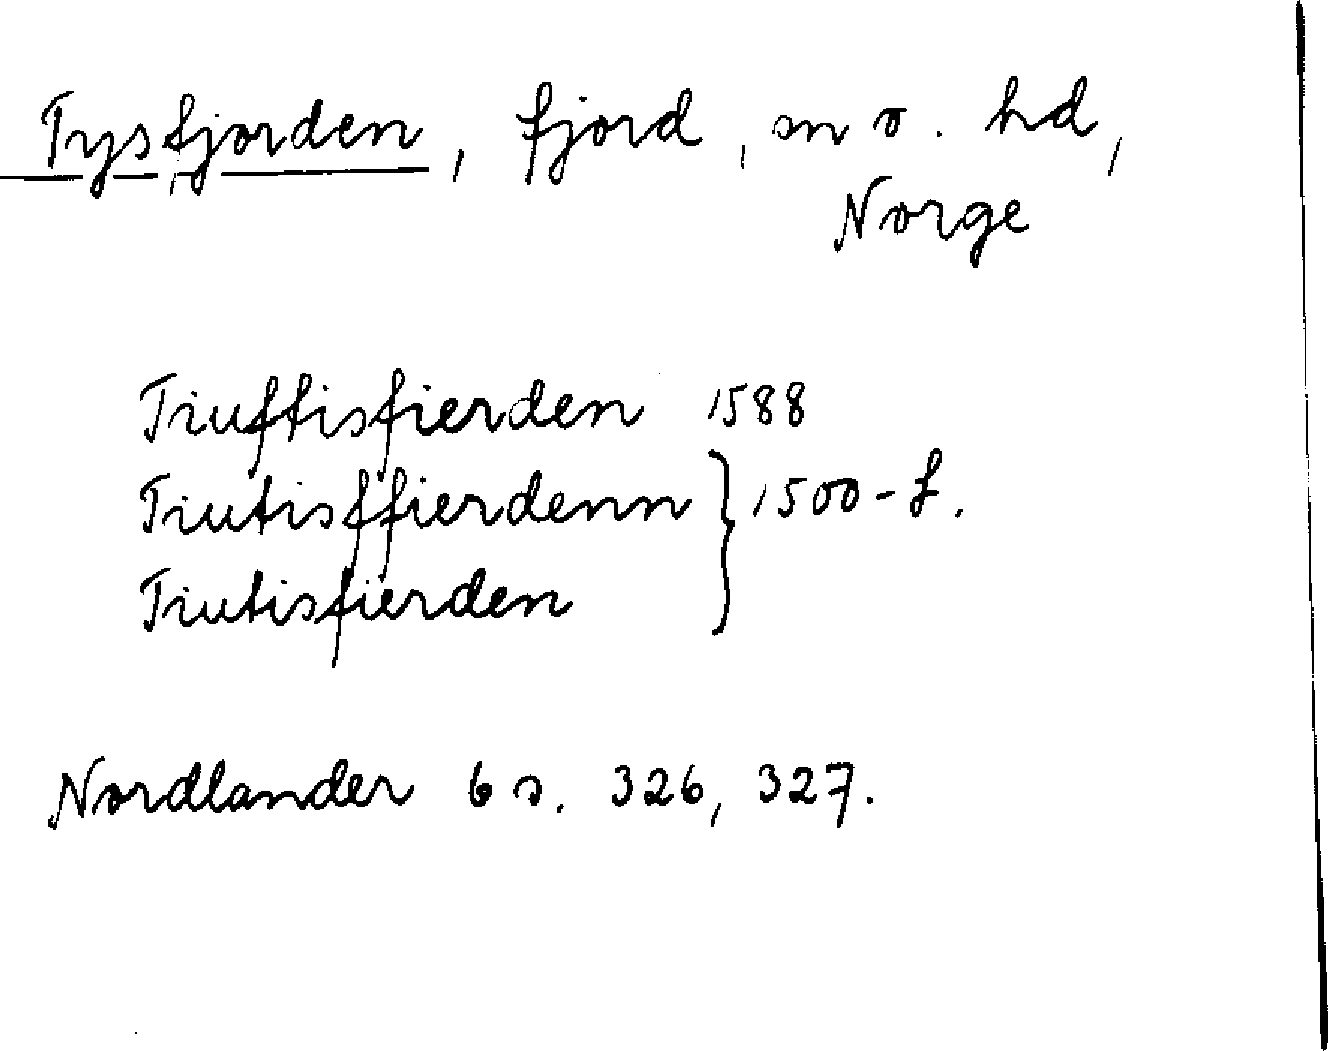 Tysfjorden, fjord, sn o. hd,
Norge
Tiuftisfierden 1588
Tiutisffierdenn } 1500-t.
Tiutisfierden
Nordlander 6 s. 326, 327.